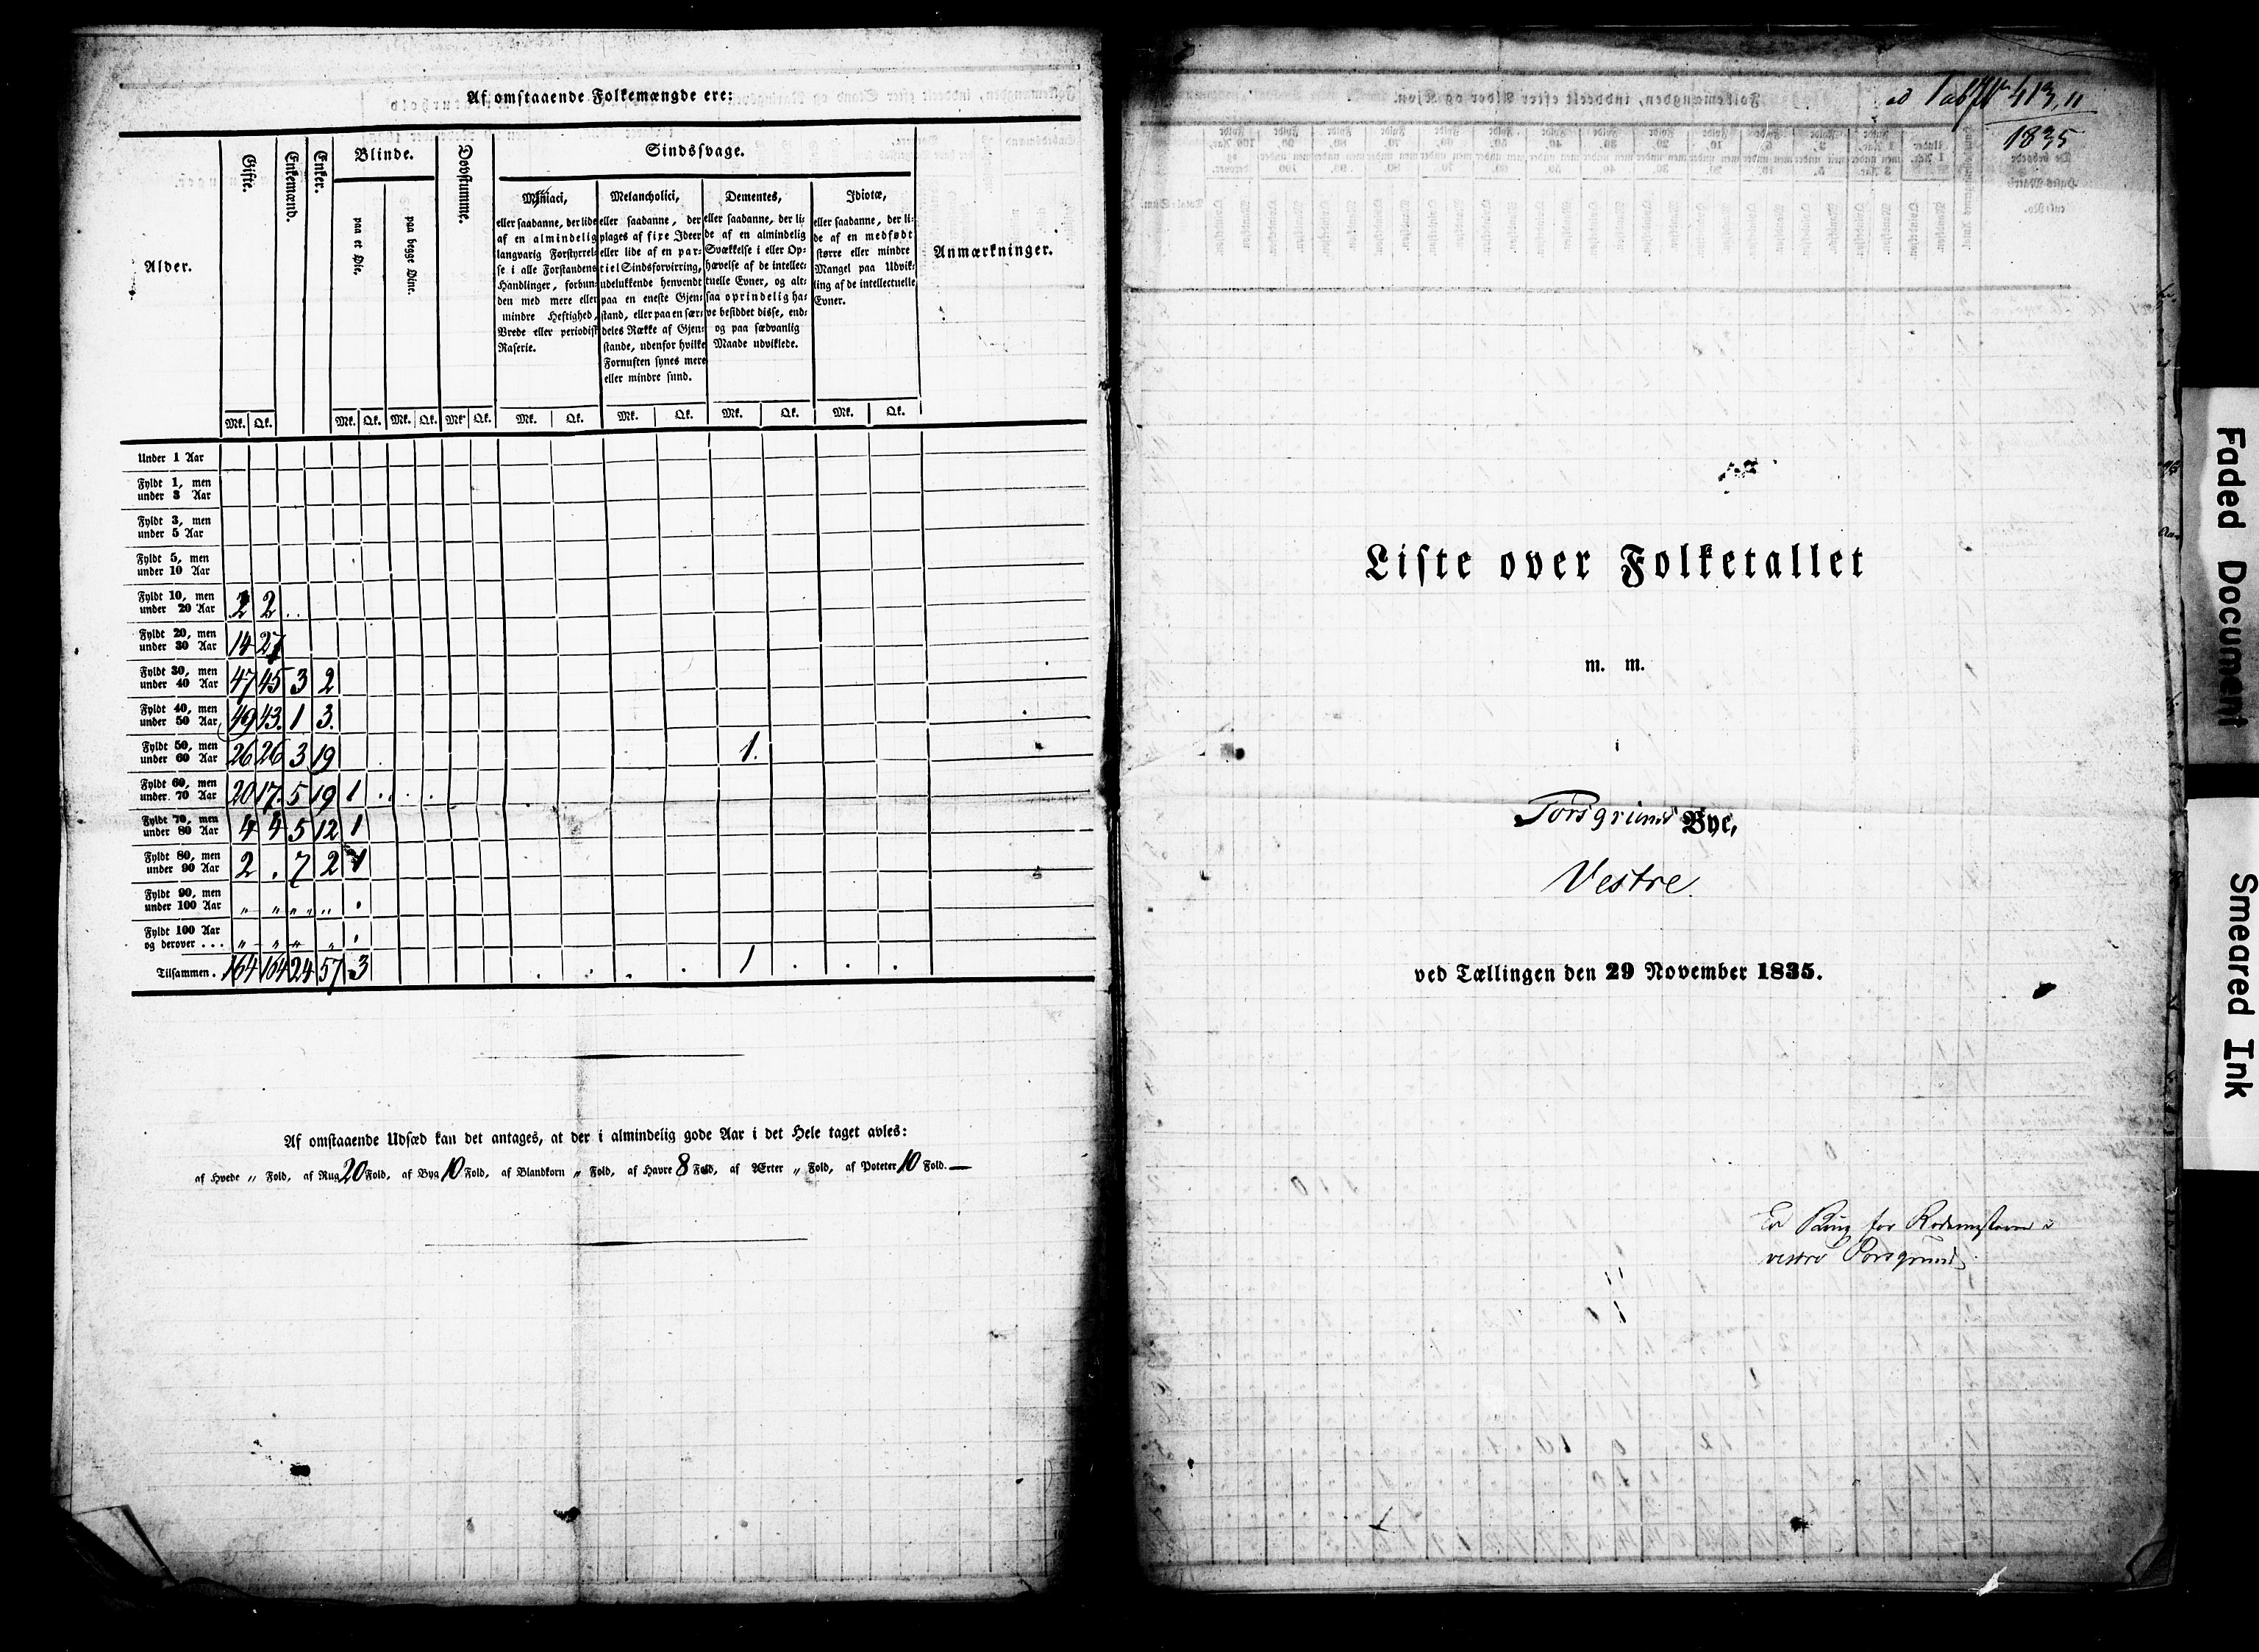 Af omstaaende Folkemængde ere:
Alder.
Gifte.
Enkemænd.
Enker.
Blinde.
paa et Øie.
paa begge Øine.
Døvstumme.
Sindssvage.
Maniaci,
eller saadanne, der lide
af en almindelig
langvarig Forstyrrel-
se i alle Forstandens
Handlinger, forbun-
den med mere eller
mindre Heftighed,
Vrede eller periodisk
Raserie.
Melancholici,
eller saadanne, der
plages af fixe Ideer
eller lide af en par-
tiel Sindsforvirring,
udelukkende henvendt
paa en eneste Gjen-
stand, eller paa en sær-
deles Række af Gjen-
stande, udenfor hvilke
Fornuften synes mere
eller mindre sund.
Dementes,
eller saadanne, der li-
de af en almindelig
Svækkelse i eller Op-
hævelse af de intellec-
tuelle Evner, og alt-
saa oprindelig ha-
ve besiddet disse, end-
og paa sædvanlig
Maade udviklede.
Idiotæ,
eller saadanne, der li-
de af en medfødt
større eller mindre
Mangel paa Udvik-
ling af de intellectuelle
Evner.
Anmærkninger.
Mk. Qk. Mk. Qk. Mk. Qk. Mk. Qk. Mk. Qk. Mk. Qk. Mk. Qk. Mk. Qk.
Under 1 Aar
Fyldt 1, men
under 3 Aar
Fyldt 3, men
under 5 Aar
Fyldt 5, men
under 10 Aar
Fyldt 10, men
under 20 Aar 2 2
Fyldt 20, men
under 30 Aar 14 27
Fyldt 30, men
under 40 Aar 47 45 3 2
Fyldt 40, men
under 50 Aar 49 43. 1 3.
Fyldt 50, men
under 60 Aar 26 26 3 19 1.
Fyldt 60, men
under 70 Aar 20 17. 5 19 1
Fyldt 70, men
under 80 Aar 4 4 5 12 1
Fyldt 80, men
under 90 Aar 2 . 7 2 1
Fyldt 90, men
under 100 Aar " " " "
Fyldt 100 Aar
og derover ... " " " "
Tilsammen. 164 164 24 57 3 1
Af omstaaende Udsæd kan det antages, at der i almindelig gode Aar i det Hele taget avles:
af Hvede " Fold, af Rug 20 Fold, af Byg 10 Fold, af Blandkorn " Fold, af Havre 8 Fold, af Ærter " Fold, af Poteter 10 Fold.
1835
Liste over Folketallet
m. m.
i
Porsgrund Bye,
Vestre
ved Tællingen den 29 November 1835.
for
vestre Porsgrund
Faded Document
Smeared Ink